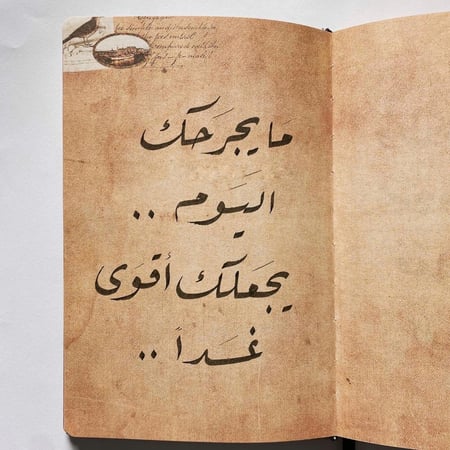 مَا يجرَحك
اليَوم ..
يجعَلك أقوَى
غَداً ..